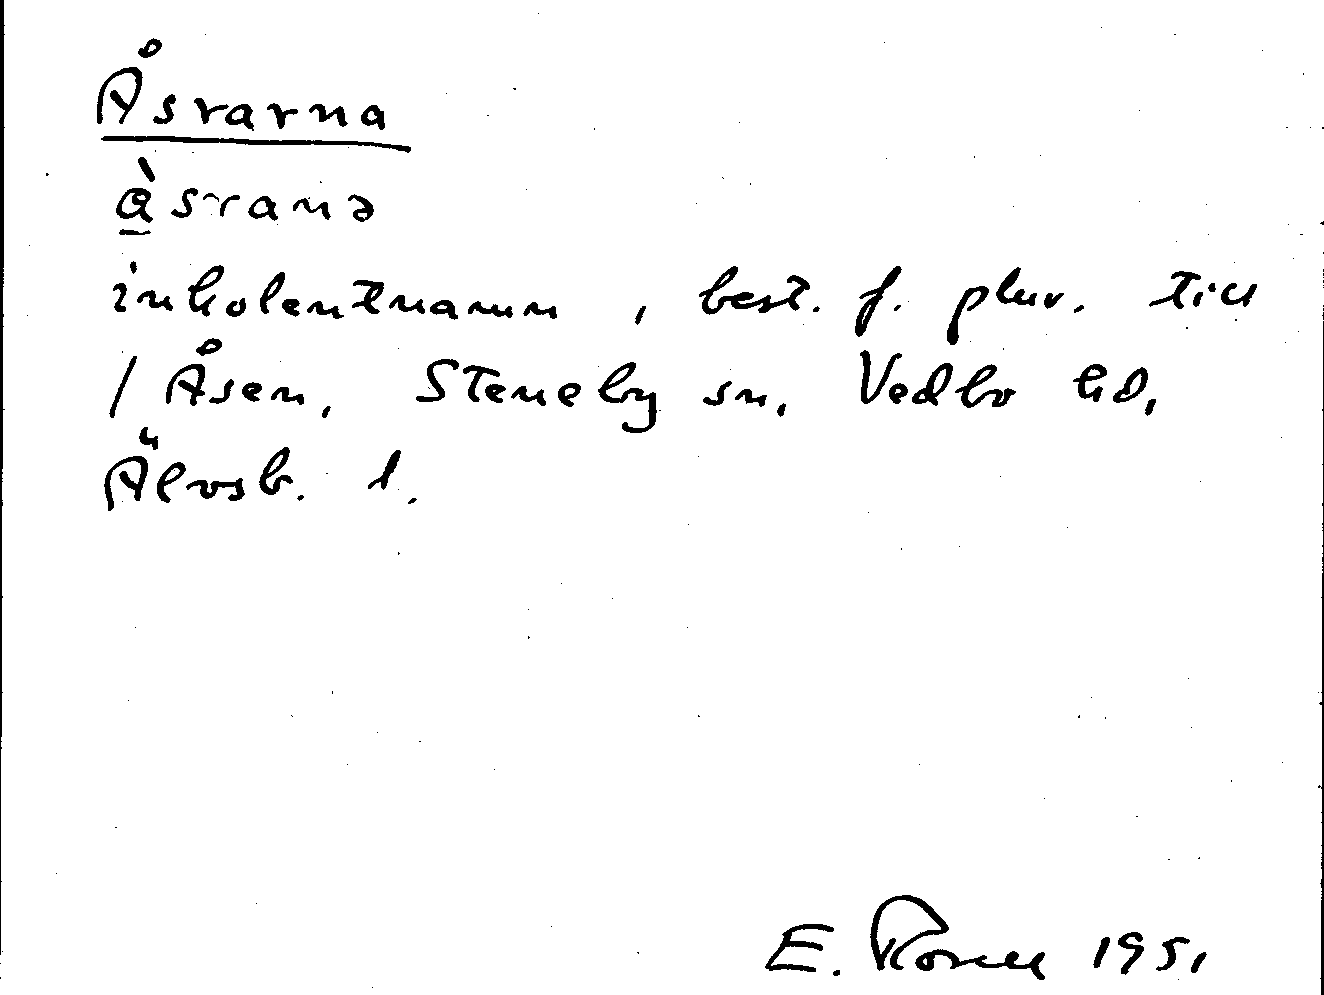 Åsrarna
à̱sranə
inkolentnamn, best. f. plur. till
/ Åsen, Steneby sn, Vedbo hd,
Älvsb. l.
E. 1951